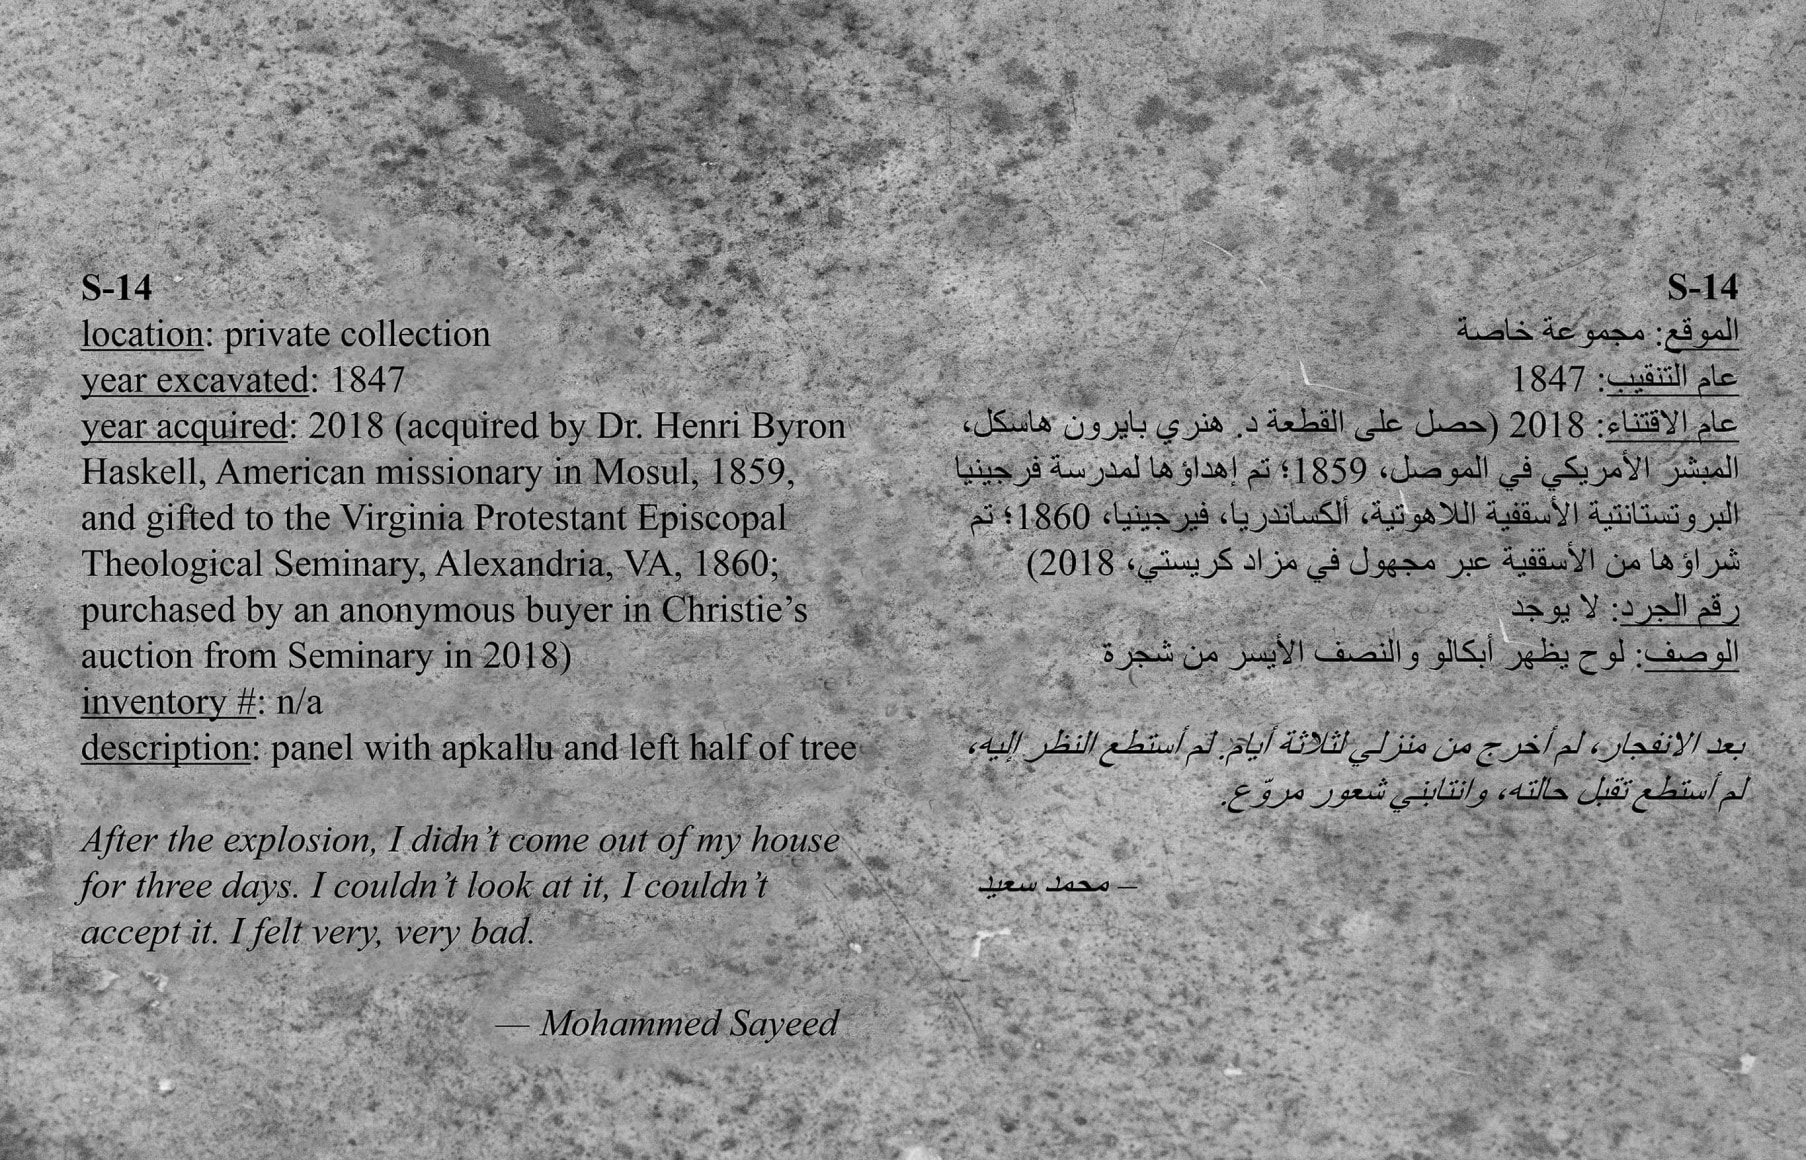 S-14
location: private collection
year excavated: 1847
year acquired: 2018 (acquired by Dr. Henri Byron
Haskell, American missionary in Mosul, 1859,
and gifted to the Virginia Protestant Episcopal
Theological Seminary, Alexandria, VA, 1860;
purchased by an anonymous buyer in Christie’s
auction from Seminary in 2018)
inventory #: n/a
description: panel with apkallu and left half of tree
After the explosion, I didn’t come out of my house
for three days. I couldn’t look at it, I couldn’t
accept it. I felt very, very bad.
— Mohammed Sayeed
S-14
الموقع: مجموعة خاصة
عام التنقيب: 1847
عام الاقتناء: 2018 (حصل على القطعة د. هنري بايرون هاسكل،
المبشر الأمريكي في الموصل، 1859؛ تم إهداؤها لمدرسة فرجينيا
البروتستانتية الأسقفية اللاهوتية، ألكساندريا، فيرجينيا، 1860؛ تم
شراؤها من الأسقفية عبر مجهول في مزاد كريستي، 2018)
رقم الجرد: لا يوجد
الوصف: لوح يظهر أبكالو والنصف الأيسر من شجرة
بعد الانفجار، لم أخرج من منزلي لثلاثة أيام. لم أستطع النظر إليه،
لم أستطع تقبل حالته، وانتابني شعور مروّع.
– محمد سعيد